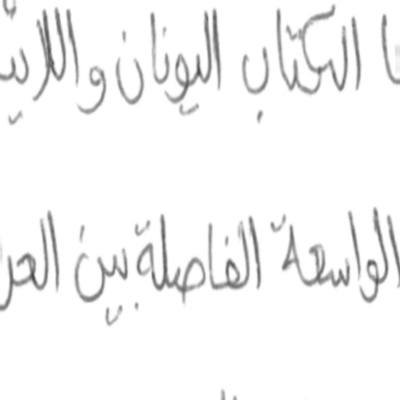 ا الكتاب اليونان واللاتي
الواسعة الفاصلة بين العر